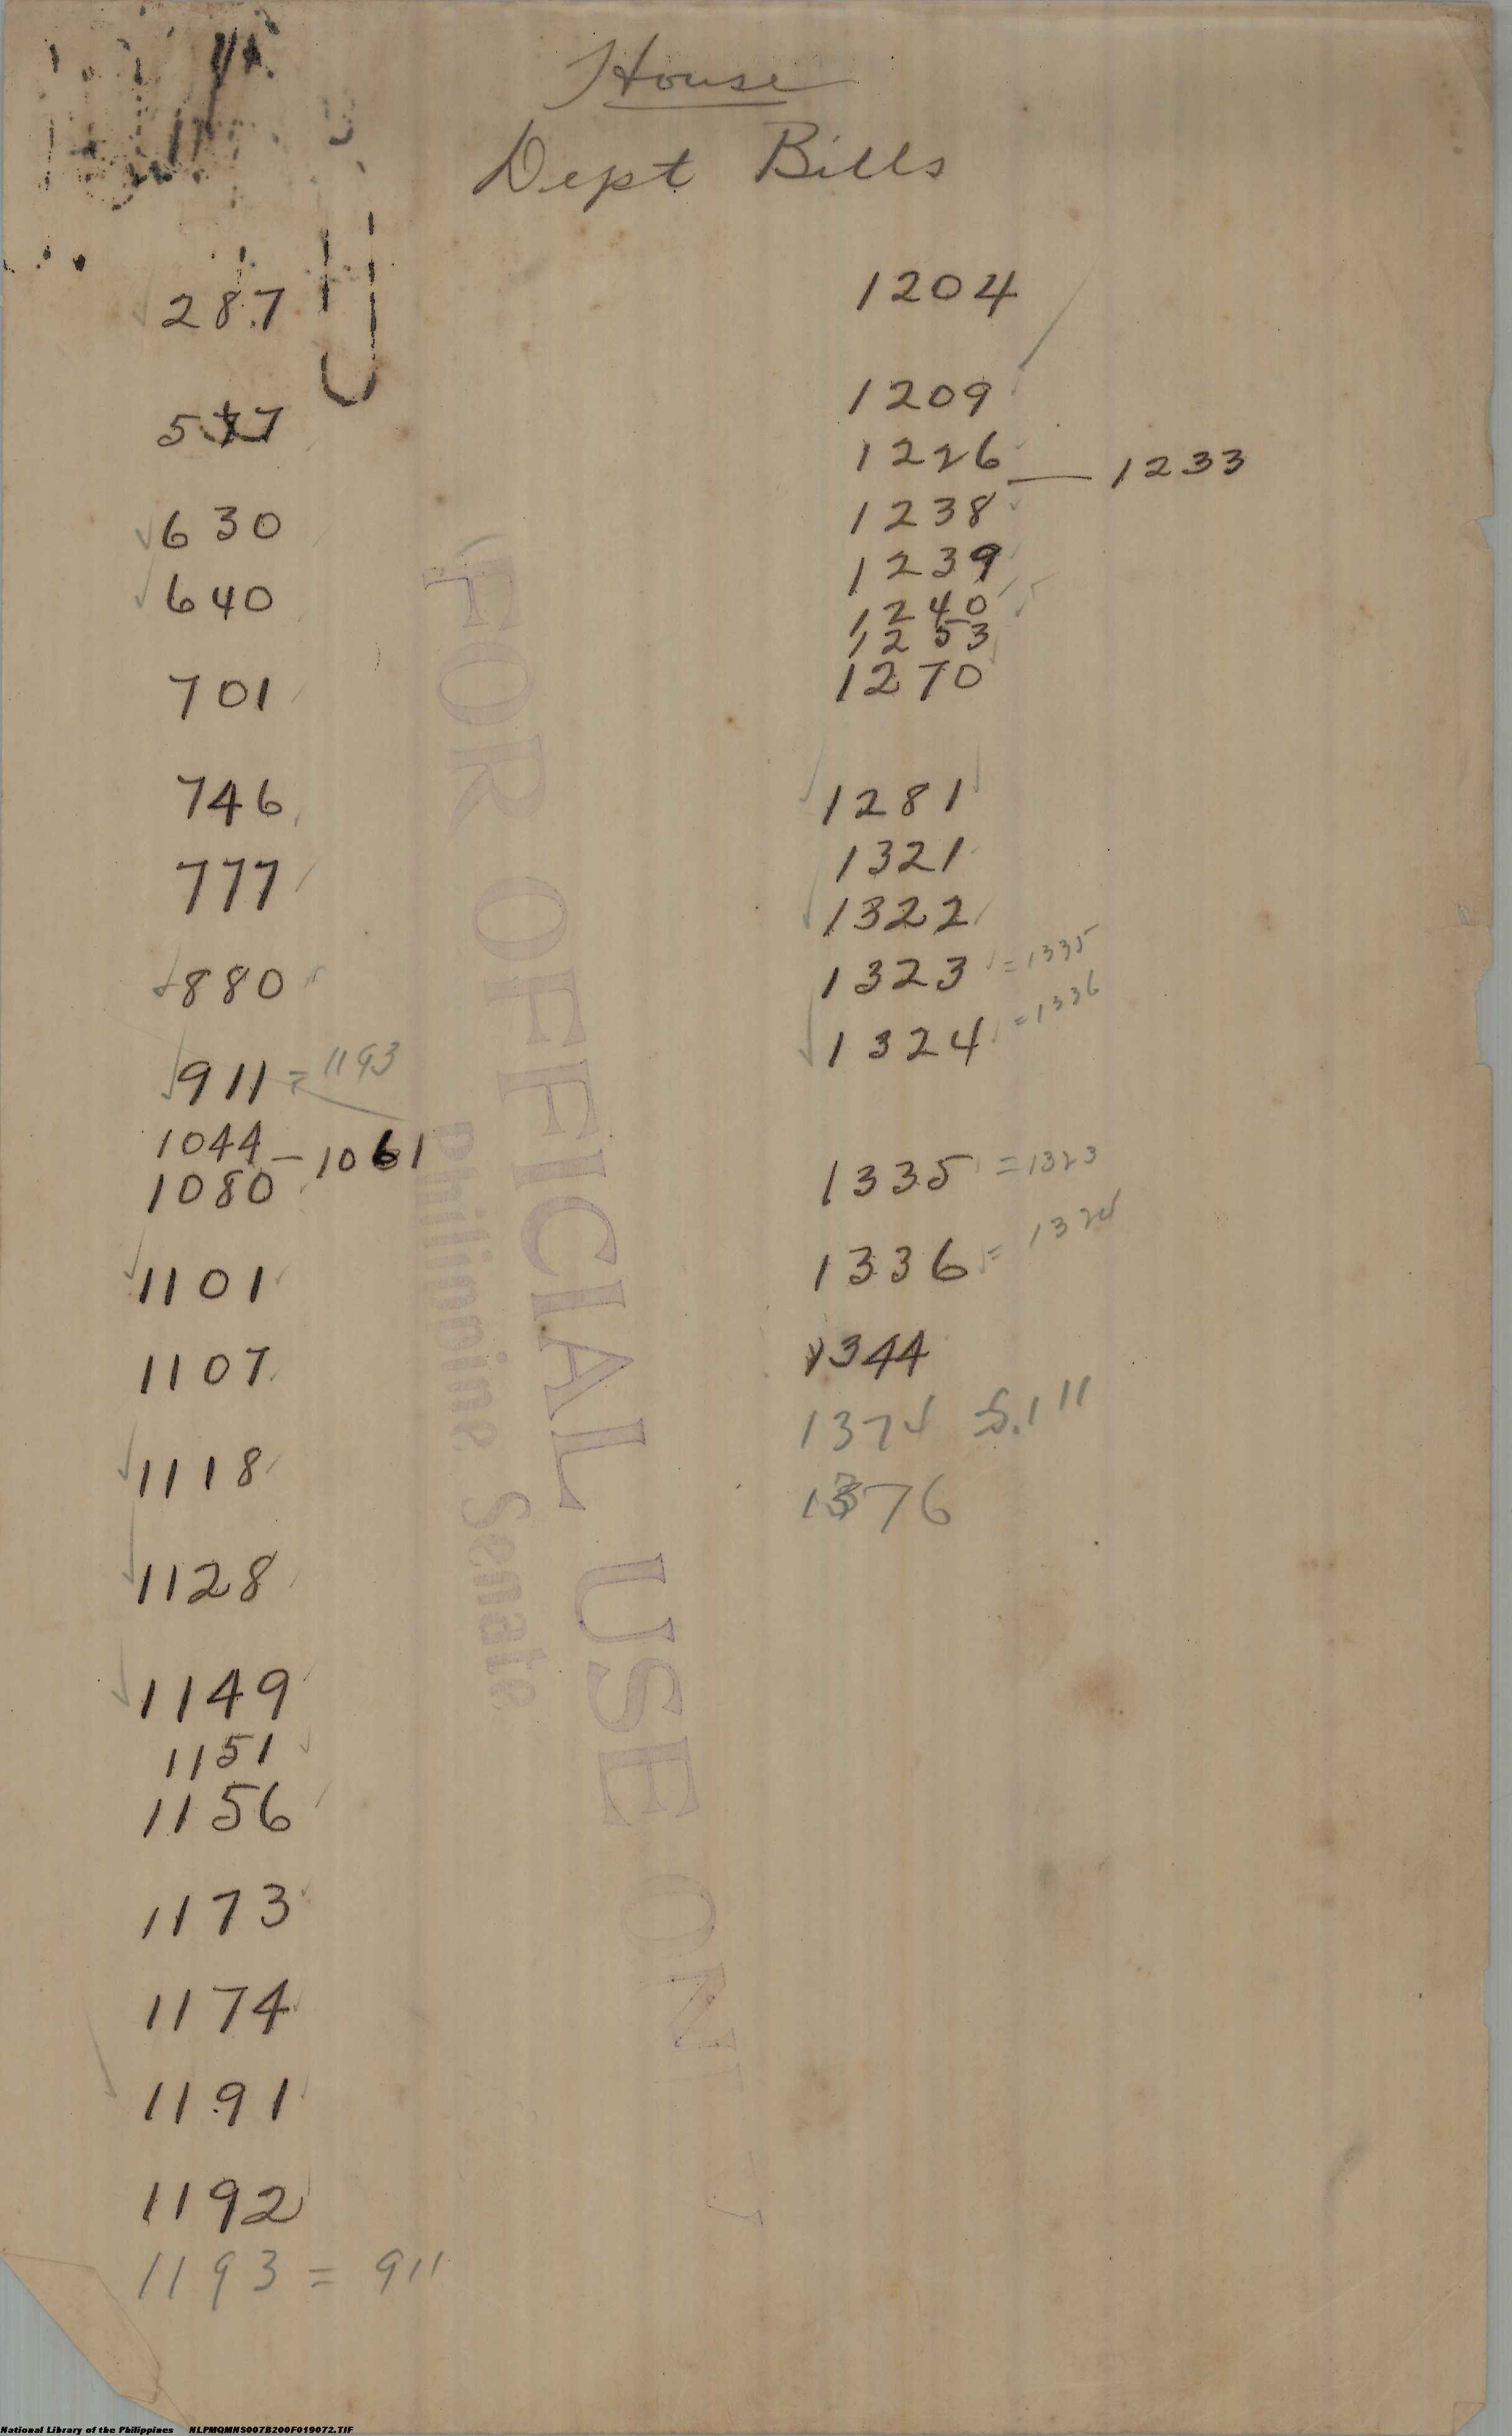 House
Dept Bills
287
630
640
701
746
777
880
911 = 1193
1044 — 1061
1080
1101
1107
1118
1128
1149
1151
1156
1173
1174
1191
1192
1193 = 911
1204
1209
1226 — 1233
1238
1239
1240
1253
1270
1281
1321
1322
1323 = 1335
1324 = 1336
1335 = 1323
1336 = 1324
1344
1374 S.111
1376
FOR OFFICIAL USE ON
Philippine Senate
National Library of the Philippines NLPMQMNS007B200F019072.TIF